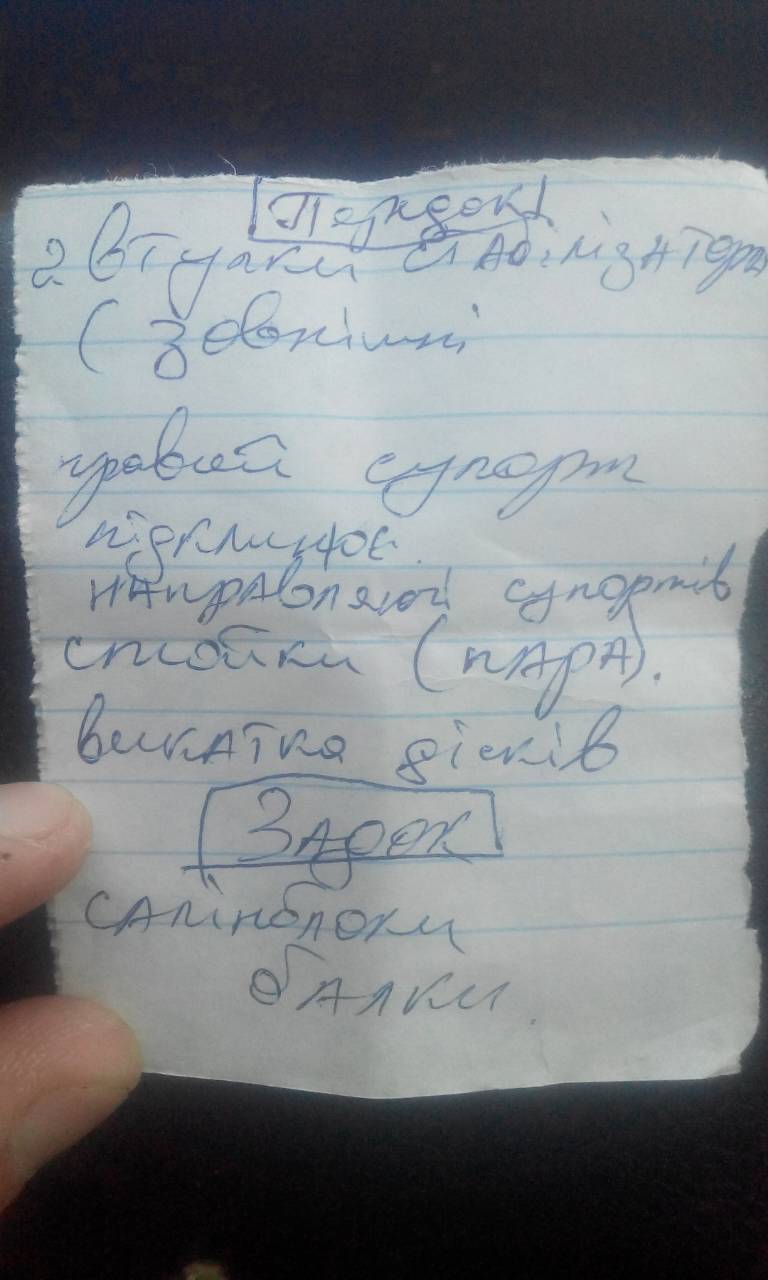 Передок
2 втулки стабілізатора
(зовнішні
правий супорт
підклинює.
направляючі супортів
стойки (пара).
викатка дісків
Задок
салінблоки
балки.